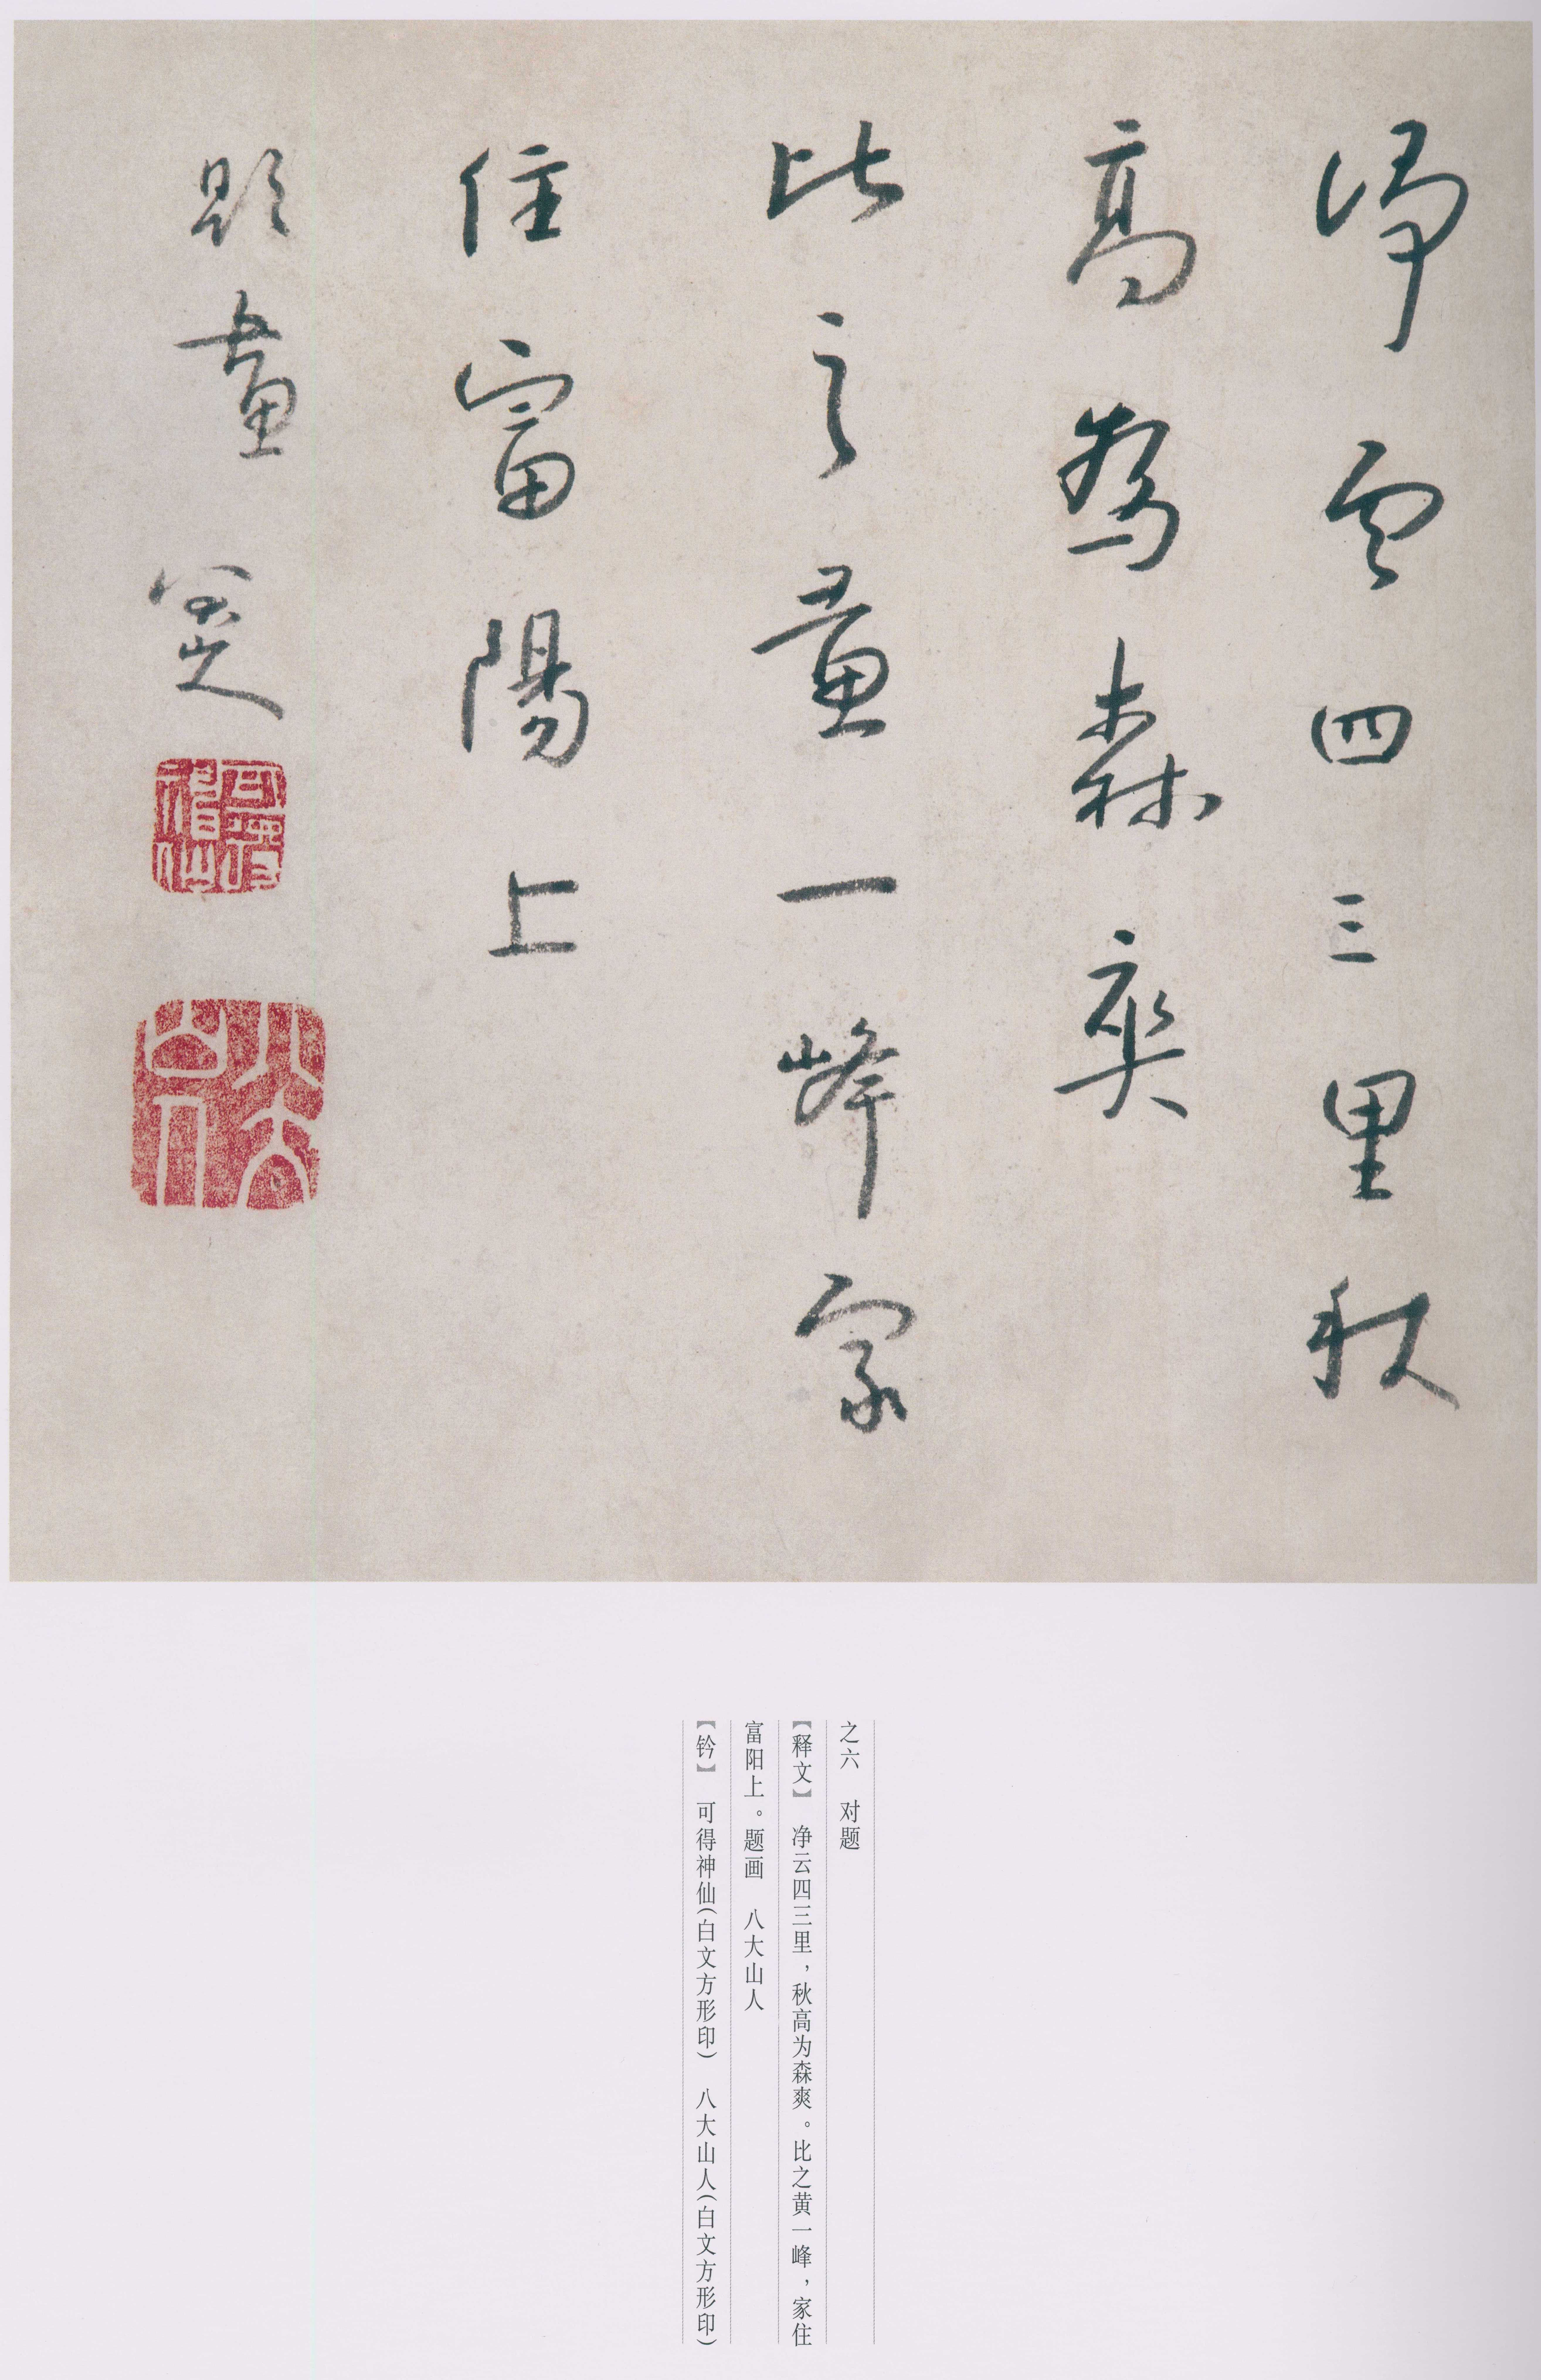 净云四三里秋
高為森爽
比之黄一峰家
住富陽上
題畫 八大山人
可得神仙
八大山人
之六 对题
【释文】 净云四三里，秋高为森爽。比之黄一峰，家住
富阳上。题画 八大山人
【钤】 可得神仙（白文方形印） 八大山人（白文方形印）